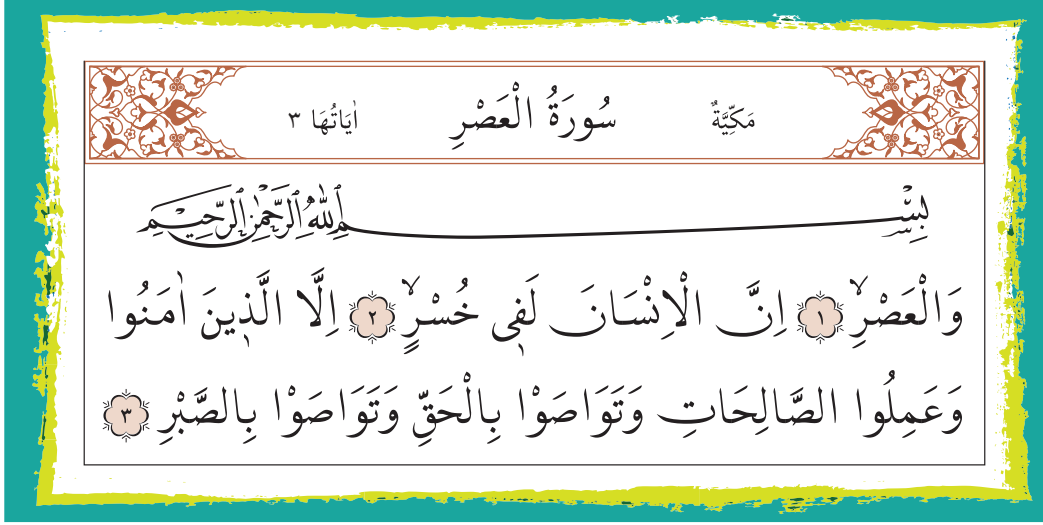 مَكِّيَّةٌ سُورَةُ الْعَصْرِ اٰيَاتُهَا ٣
بِسْمِ اللّٰهِ الرَّحْمٰنِ الرَّحِيمِ
وَالْعَصْرِۙ ١ اِنَّ الْاِنْسَانَ لَف۪ى خُسْرٍۙ ٢ اِلَّا الَّذ۪ينَ اٰمَنُوا
وَعَمِلُوا الصَّالِحَاتِ وَتَوَاصَوْا بِالْحَقِّ وَتَوَاصَوْا بِالصَّبْرِ ٣